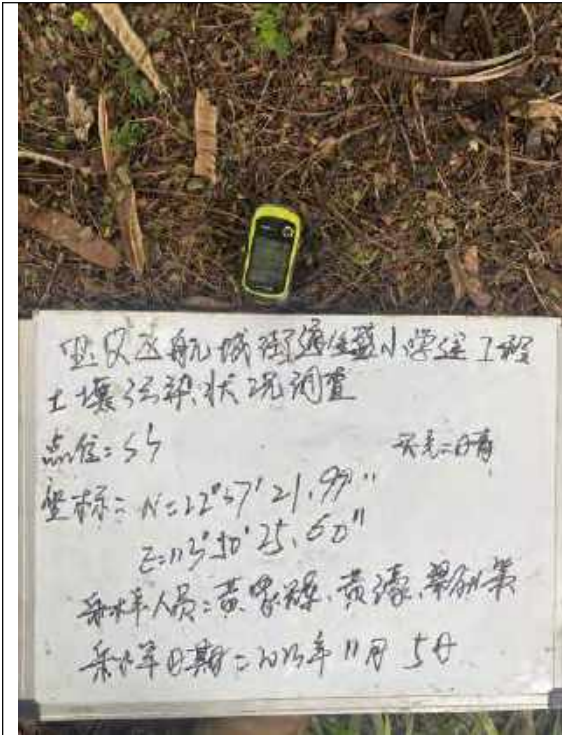 宝安区航城街道佳盛小学建工程
土壤污染状况调查
点位:S5 天气:晴
坐标:N:22°37'21.97"
E:113°50'25.60"
采样人员:黄
采样日期:2023年11月5日